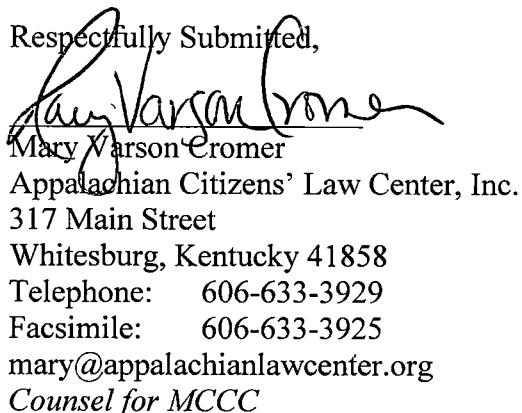 Respectfully Submitted,
Mary Varson Cromer
Mary Varson Cromer
Appalachian Citizens' Law Center, Inc.
317 Main Street
Whitesburg, Kentucky 41858
Telephone: 606-633-3929
Facsimile: 606-633-3925
mary@appalachianlawcenter.org
Counsel for MCCC